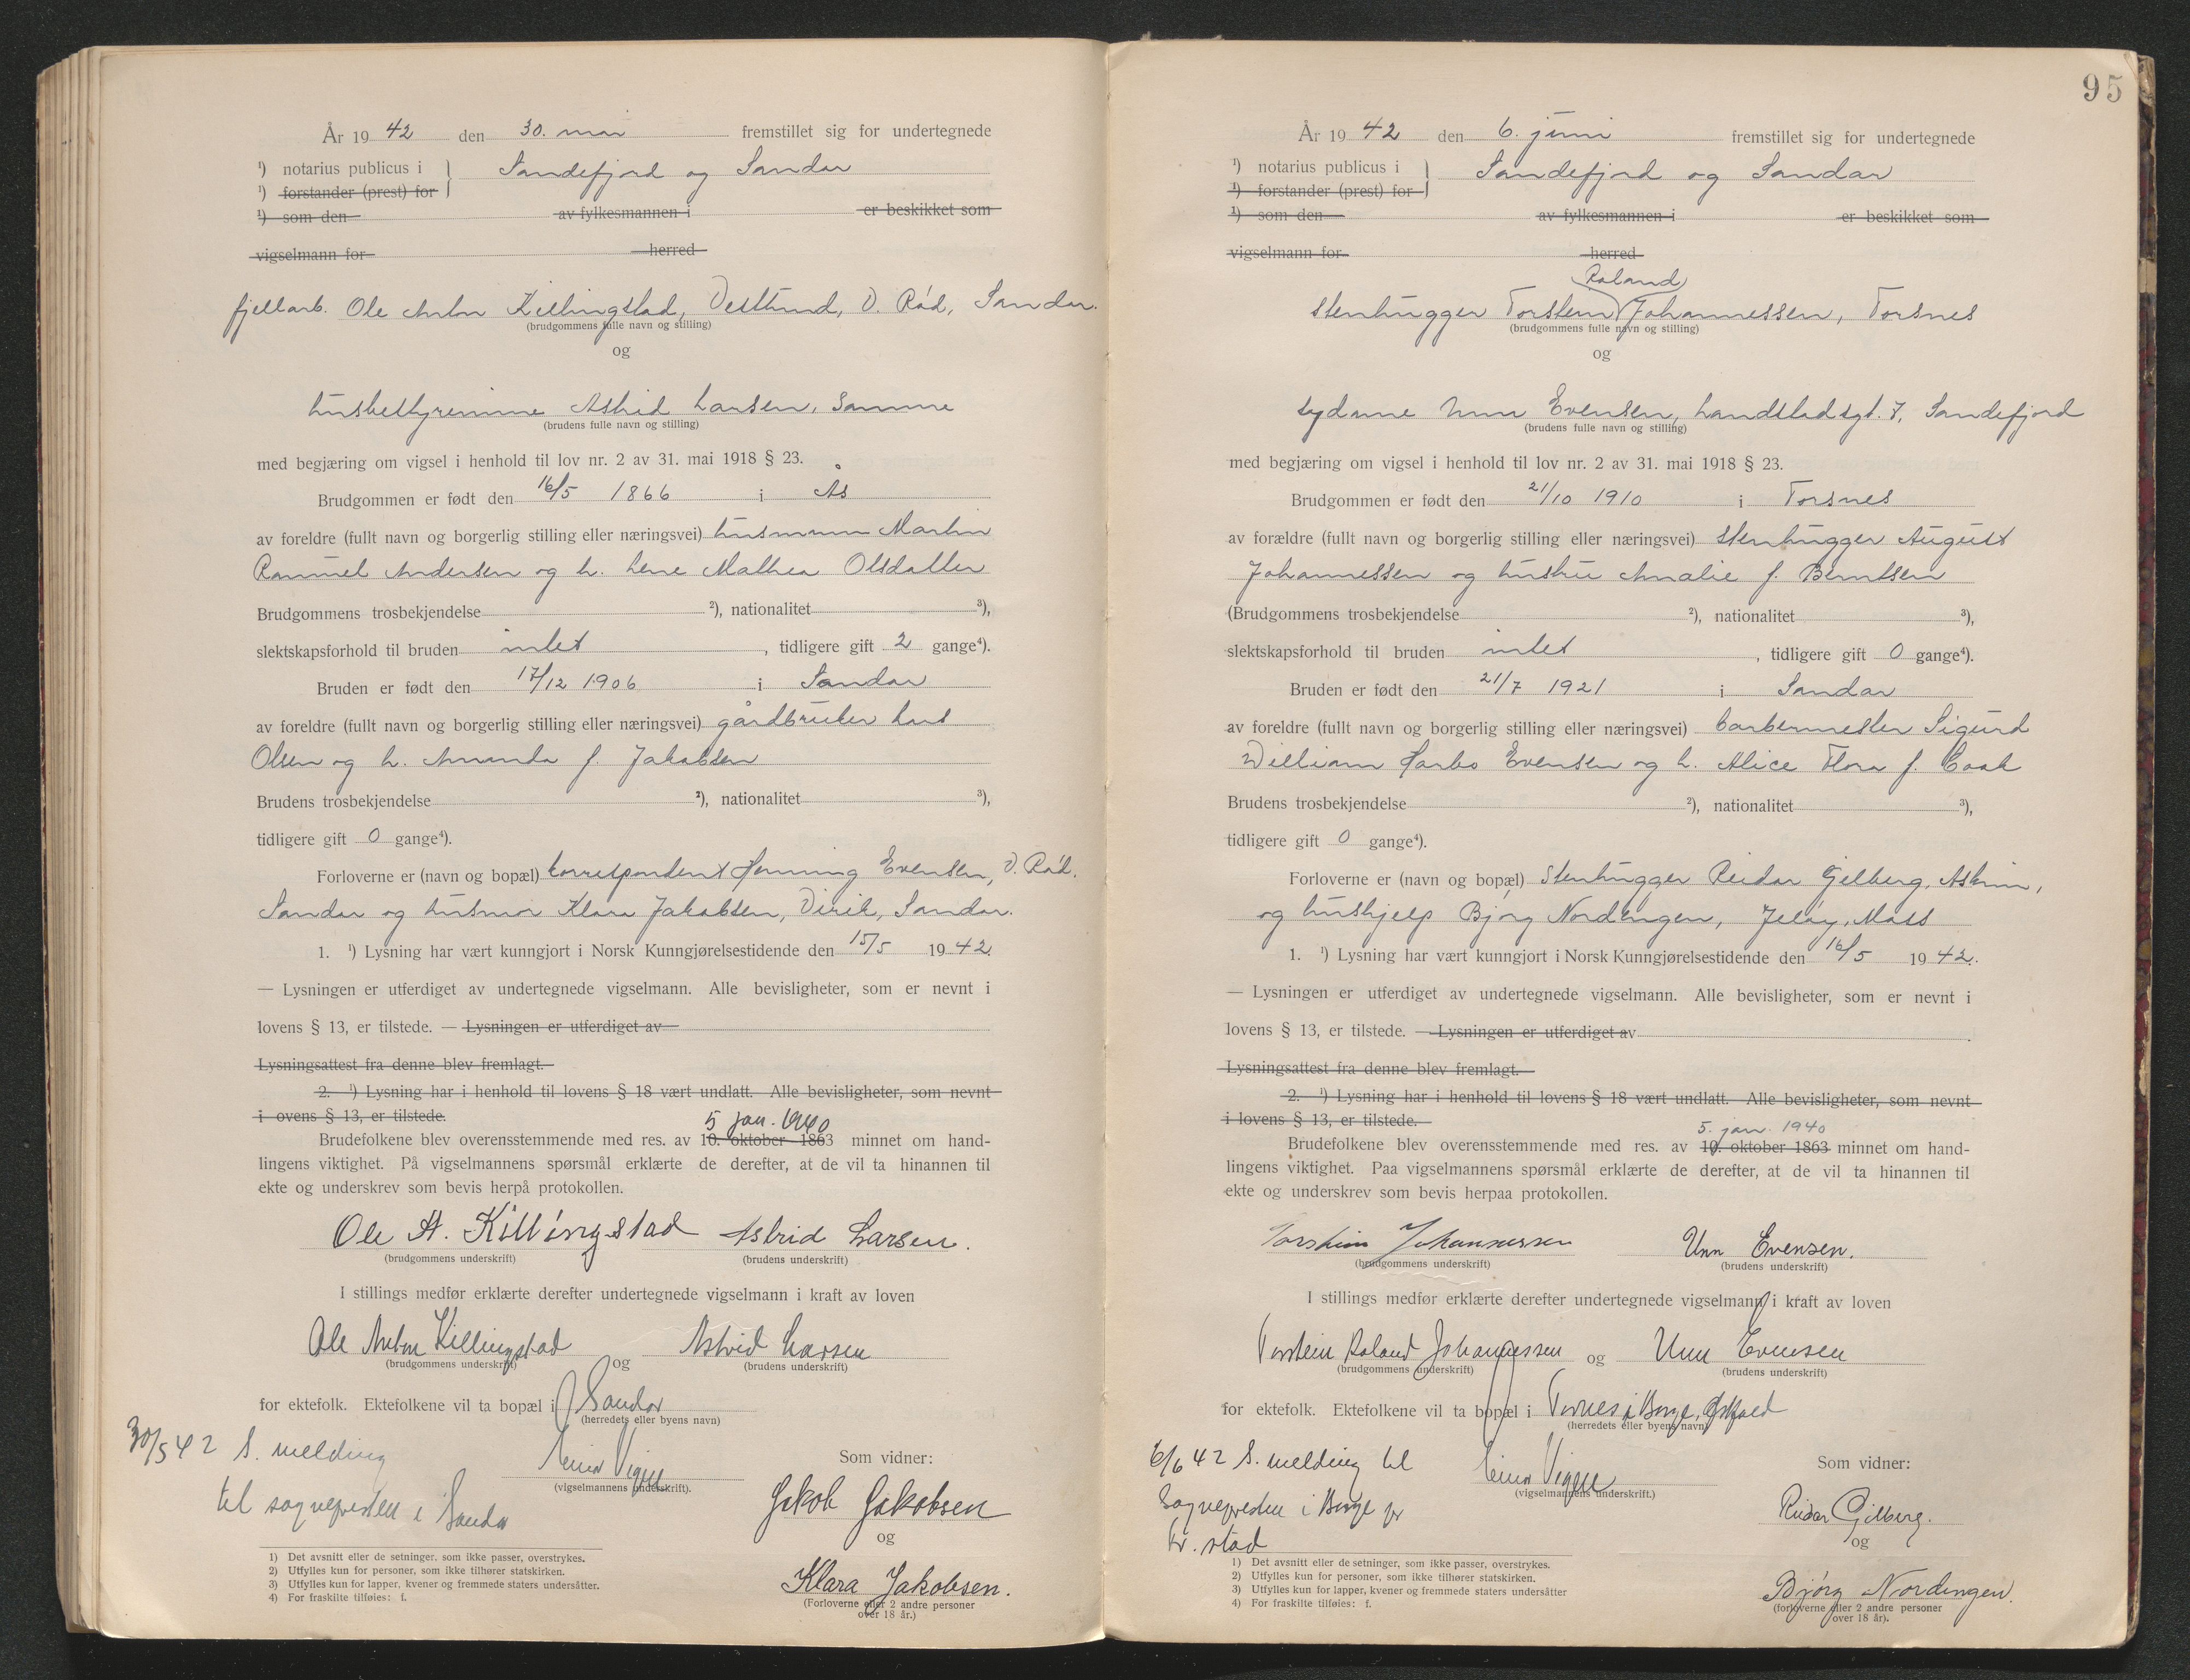 År 19 42 den 30. mai fremstillet sig for undertegnede
¹) notarius publicus i } Sandefjord og Sandar
¹) forstander (prest) for
¹) som den av fylkesmannen i er beskikket som
vigselmann for herred
fjellarb. Ole Anton Killingstad, Vestlund, V. Rød, Sandar.
(brudgommens fulle navn og stilling)
og
husbestyrerinne Astrid Larsen, samme
(brudens fulle navn og stilling)
med begjæring om vigsel i henhold til lov nr. 2 av 31. mai 1918 § 23.
Brudgommen er født den 16/5 1866 i Ås
av foreldre (fullt navn og borgerlig stilling eller næringsvei) husmann Martin
Rammel Andersen og h. Lene Mathea Olsdatter
Brudgommens trosbekjendelse ²), nationalitet ³),
slektskapsforhold til bruden intet , tidligere gift 2 gange⁴).
Bruden er født den 17/12 1906 i Sandar
av foreldre (fullt navn og borgerlig stilling eller næringsvei) gårdbruker Lars
Olsen og h. Amanda f. Jakobsen
Brudens trosbekjendelse ²), nationalitet ³),
tidligere gift 0 gange⁴).
Forloverne er (navn og bopæl) korrespondent Henning Evensen, V. Rød.
Sandar og husmor Klara Jakobsen, Virik, Sandar.
1. ¹) Lysning har vært kunngjort i Norsk Kunngjørelsestidende den 15/5 1942.
— Lysningen er utferdiget av undertegnede vigselmann. Alle bevisligheter, som er nevnt i
lovens § 13, er tilstede. — Lysningen er utferdiget av
Lysningsattest fra denne blev fremlagt.
2. ¹) Lysning har i henhold til lovens § 18 vært undlatt. Alle bevisligheter, som nevnt
i ovens § 13, er tilstede.
5 jan. 1940
Brudefolkene blev overensstemmende med res. av 10. oktober 1863 minnet om hand-
lingens viktighet. På vigselmannens spørsmål erklærte de derefter, at de vil ta hinannen til
ekte og underskrev som bevis herpå protokollen.
Ole A. Killingstad Astrid Larsen.
(brudgommens underskrift) (brudens underskrift)
I stillings medfør erklærte derefter undertegnede vigselmann i kraft av loven
Ole Anton Killingstad og Astrid Larsen
(brudgommens underskrift) (brudens underskrift)
for ektefolk. Ektefolkene vil ta bopæl i Sandar
(herredets eller byens navn)
30/5 42 S. melding
til sognepresten i Sandar
Einar Vigge
(vigselmannens underskrift).
Som vidner:
Jakob Jakobsen
og
Klara Jakobsen.
(Forloverne eller 2 andre personer
over 18 år.)
1) Det avsnitt eller de setninger, som ikke passer, overstrykes.
2) Utfylles kun for personer, som ikke tilhører statskirken.
3) Utfylles kun for lapper, kvener og fremmede staters undersåtter.
4) For fraskilte tilføies: f.
95
År 19 42 den 6. juni fremstillet sig for undertegnede
¹) notarius publicus i } Sandefjord og Sandar
¹) forstander (prest) for
¹) som den av fylkesmannen i er beskikket som
vigselmann for herred
Roland
stenhugger Torstein Johannessen, Torsnes
(brudgommens fulle navn og stilling)
og
sydame Unn Evensen, Landstadsgt. 7, Sandefjord
(brudens fulle navn og stilling)
med begjæring om vigsel i henhold til lov nr. 2 av 31. mai 1918 § 23.
Brudgommen er født den 21/10 1910 i Torsnes
av forældre (fullt navn og borgerlig stilling eller næringsvei) stenhugger August
Johannessen og hustru Amalie f. Berntsen
(Brudgommens trosbekjendelse ²), nationalitet ³),
slektskapsforhold til bruden intet , tidligere gift 0 gange⁴).
Bruden er født den 21/7 1921 i Sandar
av foreldre (fullt navn og borgerlig stilling eller næringsvei) barbermester Sigurd
William Harbo Evensen og h. Alice Flora f. Cook
Brudens trosbekjendelse ²), nationalitet ³),
tidligere gift 0 gange⁴).
Forloverne er (navn og bopæl) stenhugger Reidar Gjelberg, Askim,
og hushjelp Bjørg Nordengen, Jeløy, Moss
1. ¹) Lysning har vært kunngjort i Norsk Kunngjørelsestidende den 16/5 1942.
— Lysningen er utferdiget av undertegnede vigselmann. Alle bevisligheter, som er nevnt i
lovens § 13, er tilstede. — Lysningen er utferdiget av
Lysningsattest fra denne blev fremlagt.
2. ¹) Lysning har i henhold til lovens § 18 vært undlatt. Alle bevisligheter, som nevnt
i lovens § 13, er tilstede.
5. jan. 1940
Brudefolkene blev overensstemmende med res. av 10. oktober 1863 minnet om hand-
lingens viktighet. Paa vigselmannens spørsmål erklærte de derefter, at de vil ta hinannen til
ekte og underskrev som bevis herpaa protokollen.
Torstein Johannessen Unn Evensen.
(brudgommens underskrift) (brudens underskrift)
I stillings medfør erklærte derefter undertegnede vigselmann i kraft av loven
Torstein Roland Johannessen og Unn Evensen
(brudgommens underskrift) (brudens underskrift)
for ektefolk. Ektefolkene vil ta bopæl i Torsnes i Borge, Østfold
(herredets eller byens navn)
6/6 42 S. melding til
Sognepresten i Borge pr
Fr. stad
Einar Vigge
(vigselmannens underskrift.)
Som vidner:
Reidar Gjelberg.
og
Bjørg Nordengen.
(forloverne eller 2 andre personer
over 18 år).
1) Det avsnitt eller de setninger, som ikke passer, overstrykes.
2) Utfylles kun for personer, som ikke tilhører statskirken.
3) Utfylles kun for lapper, kvener og fremmede staters undersåtter
4) For fraskilte tilføies: f.